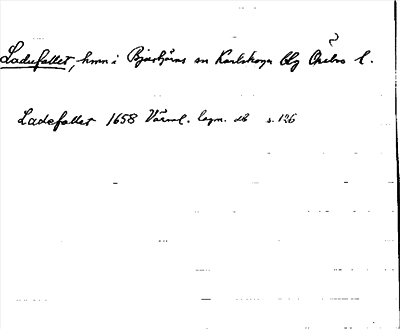 Ladufallet, hmn i Bjurtjärns sn Karlskoga blg Örebro l.
Ladefallet 1658 Värml. lagm. db s. 126